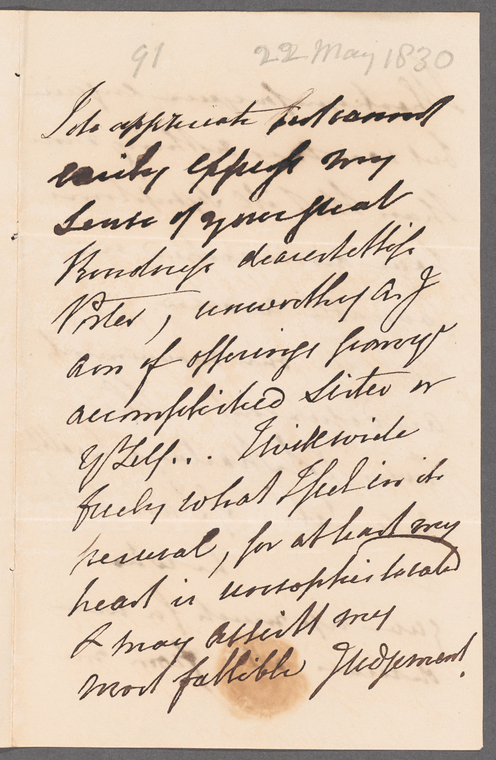 91 22 May 1830
I do appreciate but cannot
easily express my
Sense of your great
Kindness dearest Miss
Porter, unworthy as I
am of offerings from yr
accomplished Sister or
yrself... I will write
freely what I feel in its
perusal, for at least my
heart is unsophisticated
& may assist my
most fallible Judgement.